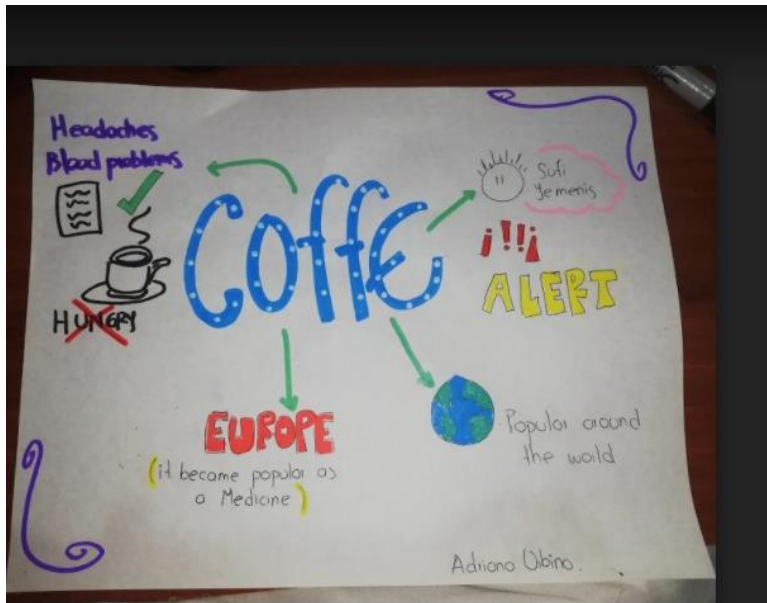 Headaches
Blood problems
HUNGRY
Coffe
Sufi
Yemenis
¡!!¡
ALERT
EUROPE
(it became popular as
a Medicine)
Popular around
the world
Adriano Urbino.